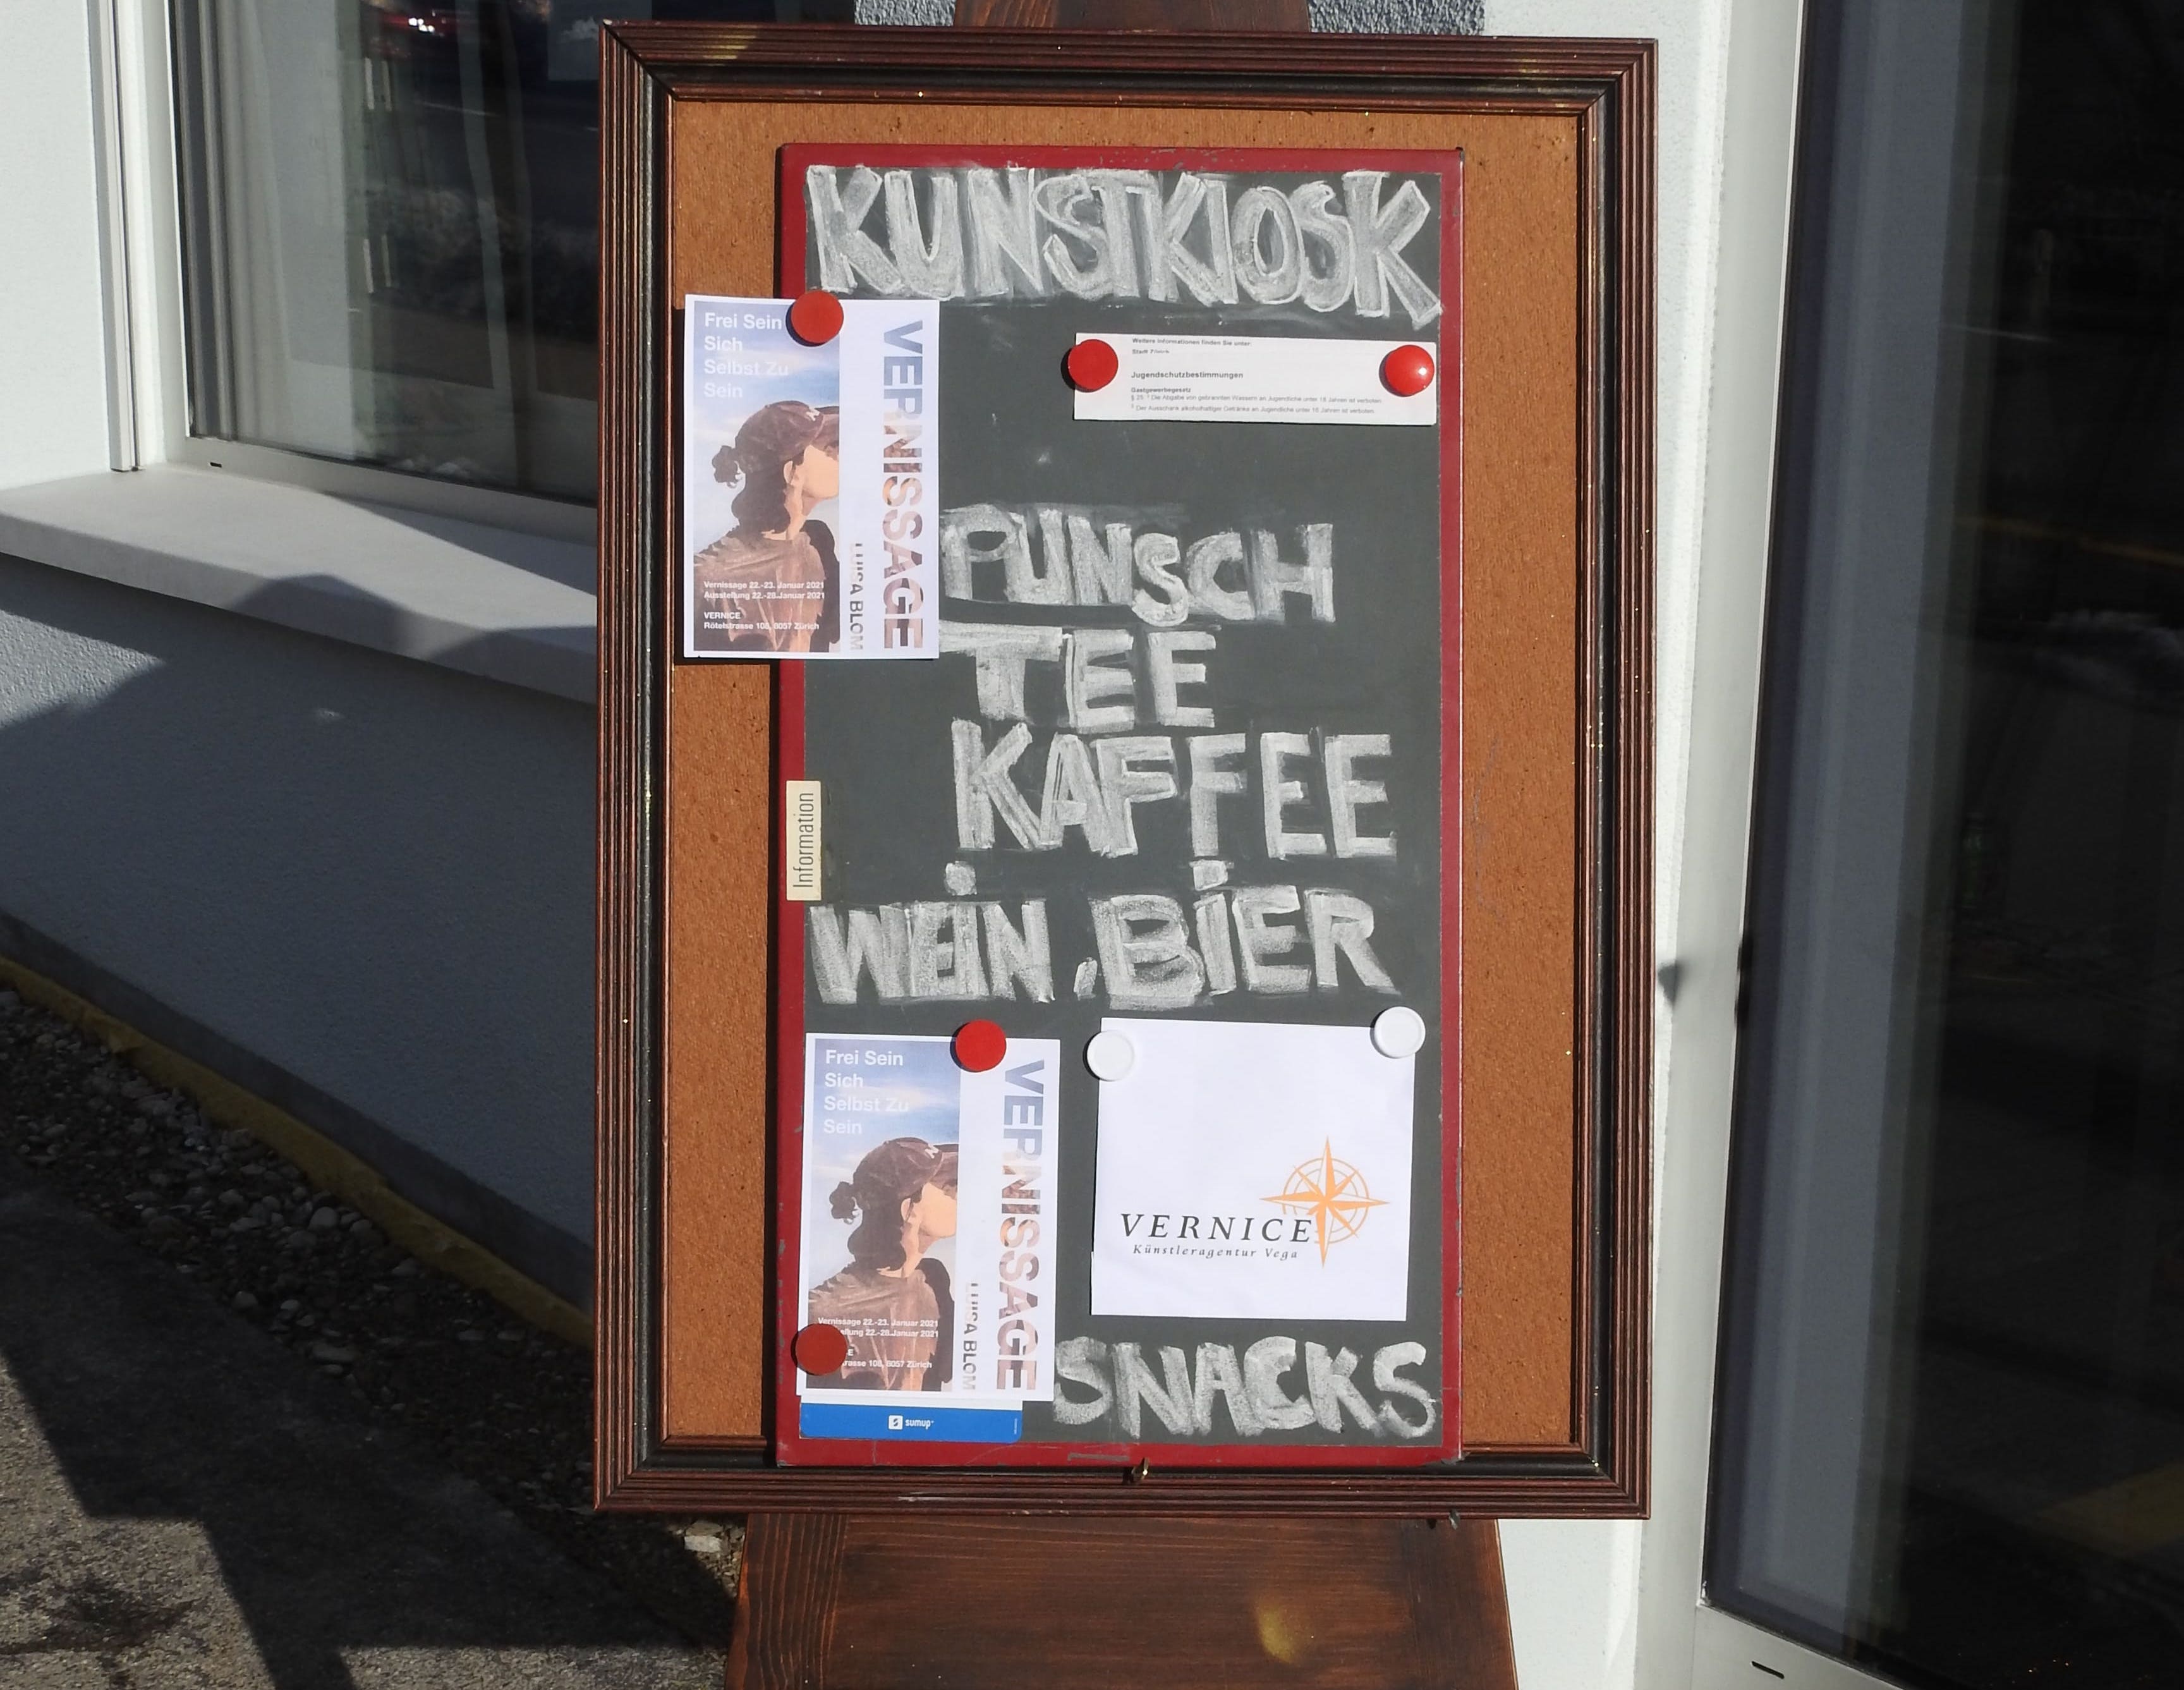 KUNSTKIOSK
Frei Sein
Sich
Selbst Zu
Sein
VERNISSAGE
LUISA BLOM
Vernissage 22.-23. Januar 2021
Ausstellung 22.-28.Januar 2021
VERNICE
Rötelstrasse 108, 8057 Zürich
Weitere Informationen finden Sie unter:
Stadt Zürich
Jugendschutzbestimmungen
Gastgewerbegesetz
§ 25 ¹ Die Abgabe von gebrannten Wassern an Jugendliche unter 18 Jahren ist verboten.
² Der Ausschank alkoholhaltiger Getränke an Jugendliche unter 16 Jahren ist verboten.
PUNSCH
TEE
KAFFEE
Information
WEiN, BiER
Frei Sein
Sich
Selbst Zu
Sein
VERNISSAGE
LUISA BLOM
Vernissage 22.-23. Januar 2021
llung 22.-28.Januar 2021
CE
rasse 108, 8057 Zürich
sumup
VERNICE
Künstleragentur Vega
SNACKS